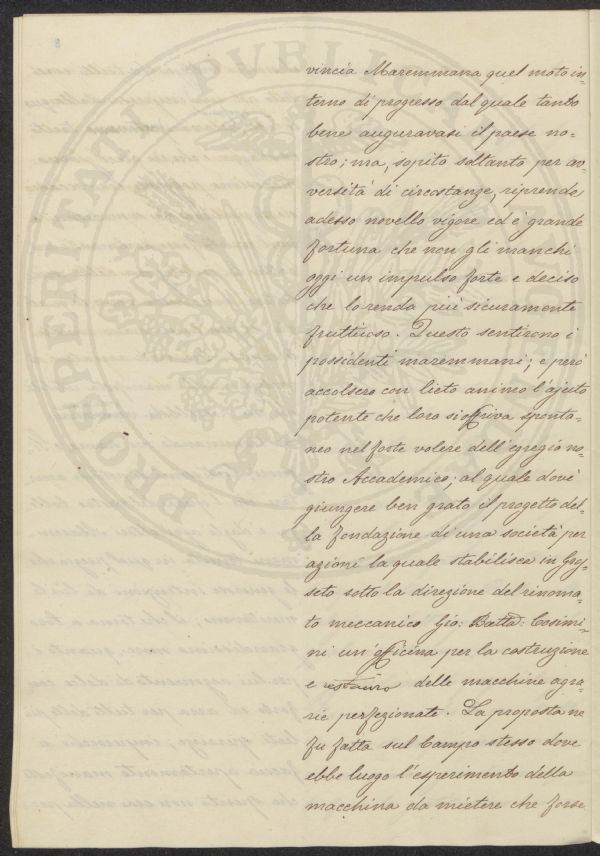 vincia Maremmana quel moto in-
terno di progresso dal quale tanto
bene auguravasi il paese no-
stro; ma, sopito soltanto per av-
versità di circostanze, riprende
adesso novello vigore ed è grande
fortuna che non gli manchi
oggi un impulso forte e deciso
che lo renda più sicuramente
fruttuoso. Questo sentirono i
possidenti maremmani; e però
accolsero con lieto animo l'ajuto
potente che loro si offriva sponta-
neo nel forte volere dell'egregio no-
stro Accademico; al quale dovè
giungere ben grato il progetto del-
la fondazione di una società per
azioni la quale stabilisce in Gros-
seto sotto la direzione del rinoma-
to meccanico Gio: Batta: Cosimi-
ni un'officina per la costruzione
e restauro delle macchine agra-
rie perfezionate. La proposta ne
fu fatta sul Campo stesso dove
ebbe luogo l'esperimento della
macchina da mietere che forse
PROSPERITATI PUBLICAE